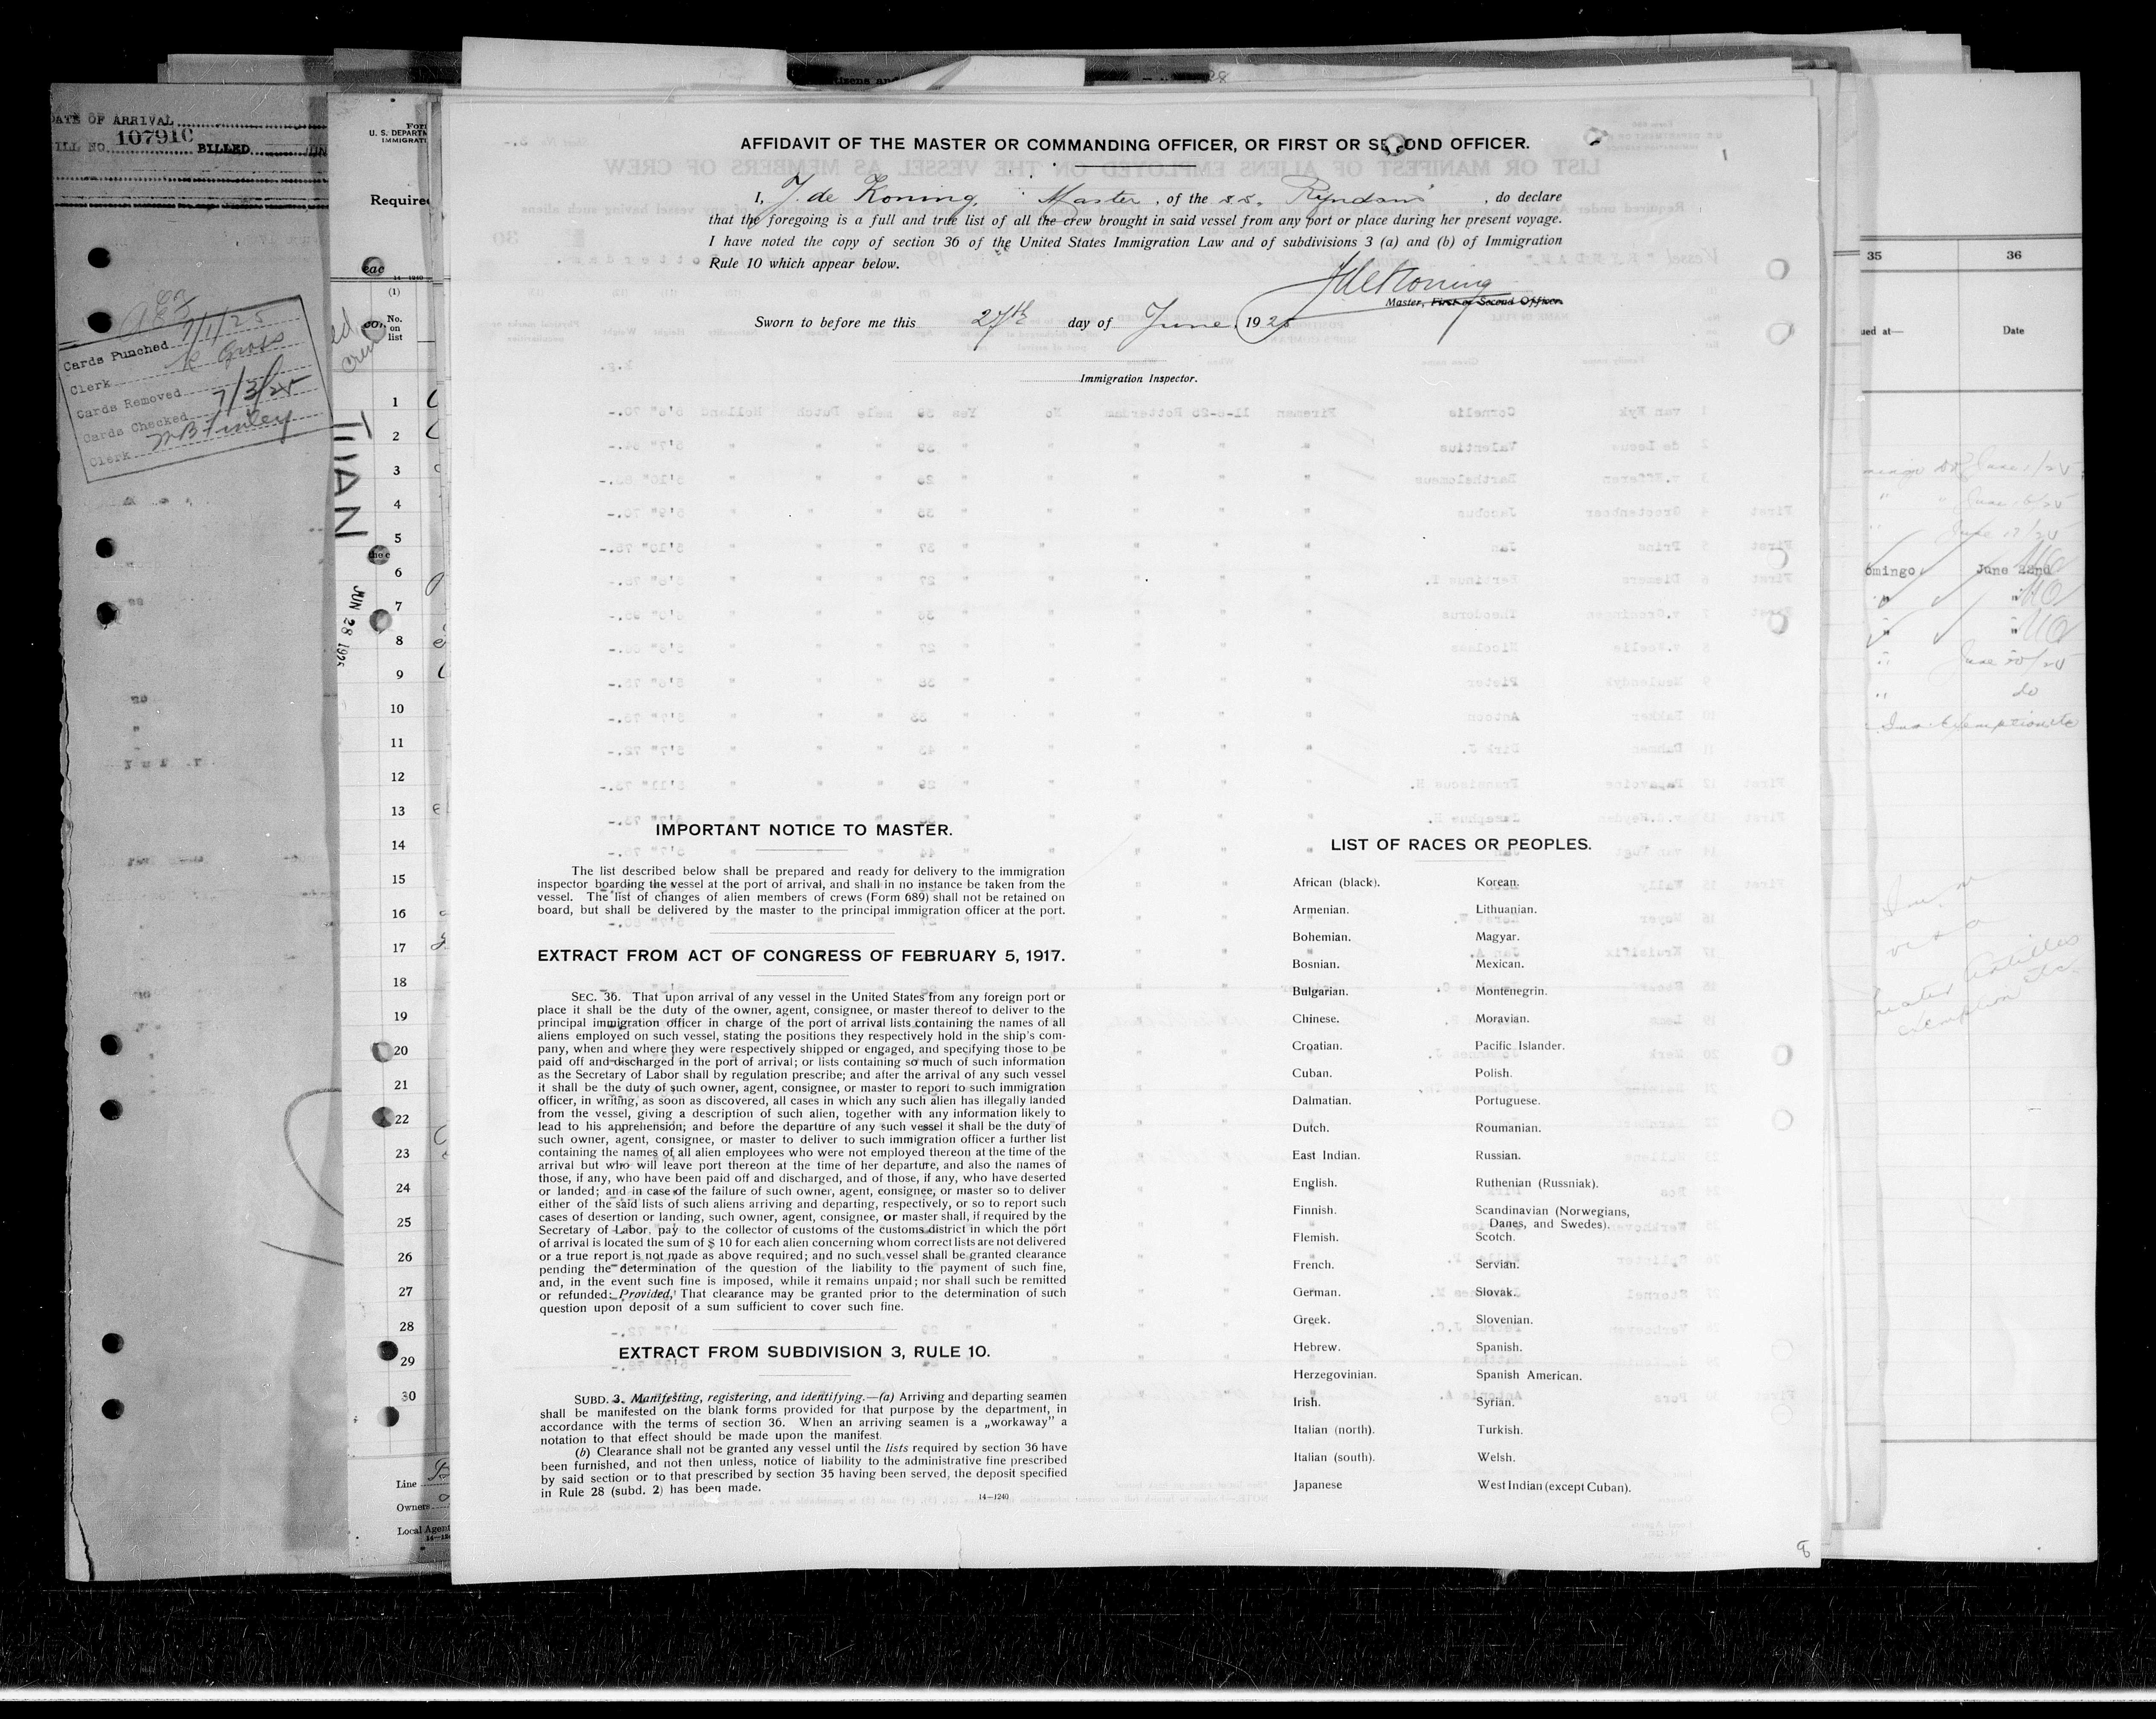 DATE OF ARRIVAL
BILL NO. 10791C BILLED JUN
7/1/25
Cards Punched
Clerk K Gross
Cards Removed
Cards Checked 7/3/25
Clerk
JUN 28 1925
U. S. DEPARTM
IMMIGRATI
Require
(1)
No.
on
list
1
2
3
4
5
6
7
8
9
10
11
12
13
14
15
16
17
18
19
20
21
22
23
24
25
26
27
28
29
30
Line
Owners
Local Agent
AFFIDAVIT OF THE MASTER OR COMMANDING OFFICER, OR FIRST OR SECOND OFFICER.
I, J. de Koning, Master, of the s.s. "Ryndam", do declare
that the foregoing is a full and true list of all the crew brought in said vessel from any port or place during her present voyage.
I have noted the copy of section 36 of the United States Immigration Law and of subdivisions 3 (a) and (b) of Immigration
Rule 10 which appear below.
J de Koning
Master, First or Second Officer.
Sworn to before me this 27th day of June, 1925
Immigration Inspector.
IMPORTANT NOTICE TO MASTER.
The list described below shall be prepared and ready for delivery to the immigration
inspector boarding the vessel at the port of arrival, and shall in no instance be taken from the
vessel. The list of changes of alien members of crews (Form 689) shall not be retained on
board, but shall be delivered by the master to the principal immigration officer at the port.
EXTRACT FROM ACT OF CONGRESS OF FEBRUARY 5, 1917.
SEC. 36. That upon arrival of any vessel in the United States from any foreign port or
place it shall be the duty of the owner, agent, consignee, or master thereof to deliver to the
principal immigration officer in charge of the port of arrival lists containing the names of all
aliens employed on such vessel, stating the positions they respectively hold in the ship's com-
pany, when and where they were respectively shipped or engaged, and specifying those to be
paid off and discharged in the port of arrival; or lists containing so much of such information
as the Secretary of Labor shall by regulation prescribe; and after the arrival of any such vessel
it shall be the duty of such owner, agent, consignee, or master to report to such immigration
officer, in writing, as soon as discovered, all cases in which any such alien has illegally landed
from the vessel, giving a description of such alien, together with any information likely to
lead to his apprehension; and before the departure of any such vessel it shall be the duty of
such owner, agent, consignee, or master to deliver to such immigration officer a further list
containing the names of all alien employees who were not employed thereon at the time of the
arrival but who will leave port thereon at the time of her departure, and also the names of
those, if any, who have been paid off and discharged, and of those, if any, who have deserted
or landed; and in case of the failure of such owner, agent, consignee, or master so to deliver
either of the said lists of such aliens arriving and departing, respectively, or so to report such
cases of desertion or landing, such owner, agent, consignee, or master shall, if required by the
Secretary of Labor. pay to the collector of customs of the customs district in which the port
of arrival is located the sum of $ 10 for each alien concerning whom correct lists are not delivered
or a true report is not made as above required; and no such vessel shall be granted clearance
pending the determination of the question of the liability to the payment of such fine,
and, in the event such fine is imposed, while it remains unpaid; nor shall such be remitted
or refunded: Provided, That clearance may be granted prior to the determination of such
question upon deposit of a sum sufficient to cover such fine.
EXTRACT FROM SUBDIVISION 3, RULE 10.
SUBD. 3. Manifesting, registering, and identifying.—(a) Arriving and departing seamen
shall be manifested on the blank forms provided for that purpose by the department, in
accordance with the terms of section 36. When an arriving seamen is a „workaway" a
notation to that effect should be made upon the manifest.
(b) Clearance shall not be granted any vessel until the lists required by section 36 have
been furnished, and not then unless, notice of liability to the administrative fine prescribed
by said section or to that prescribed by section 35 having been served, the deposit specified
in Rule 28 (subd. 2) has been made.
14—1240
LIST OF RACES OR PEOPLES.
African (black). Korean.
Armenian. Lithuanian.
Bohemian. Magyar.
Bosnian. Mexican.
Bulgarian. Montenegrin.
Chinese. Moravian.
Croatian. Pacific Islander.
Cuban. Polish.
Dalmatian. Portuguese.
Dutch. Roumanian.
East Indian. Russian.
English. Ruthenian (Russniak).
Finnish. Scandinavian (Norwegians,
Danes, and Swedes).
Flemish. Scotch.
French. Servian.
German. Slovak.
Greek. Slovenian.
Hebrew. Spanish.
Herzegovinian. Spanish American.
Irish. Syrian.
Italian (north). Turkish.
Italian (south). Welsh.
Japanese West Indian (except Cuban).
8
35 36
ued at— Date
June 17/25
omingo, June 22nd
do